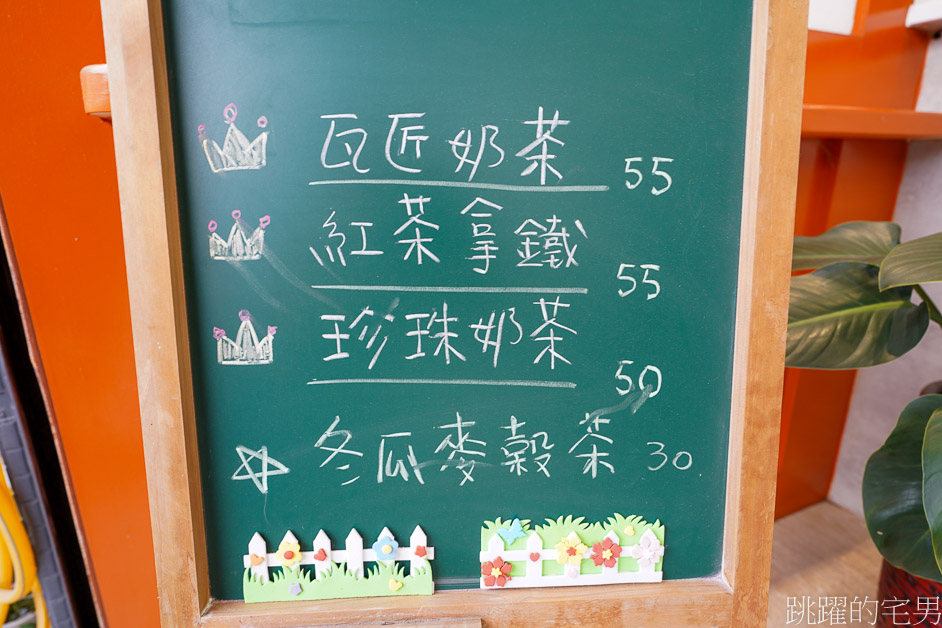 瓦匠奶茶 55
紅茶拿鐵 55
珍珠奶茶 50
冬瓜麥穀茶 30
跳躍的宅男